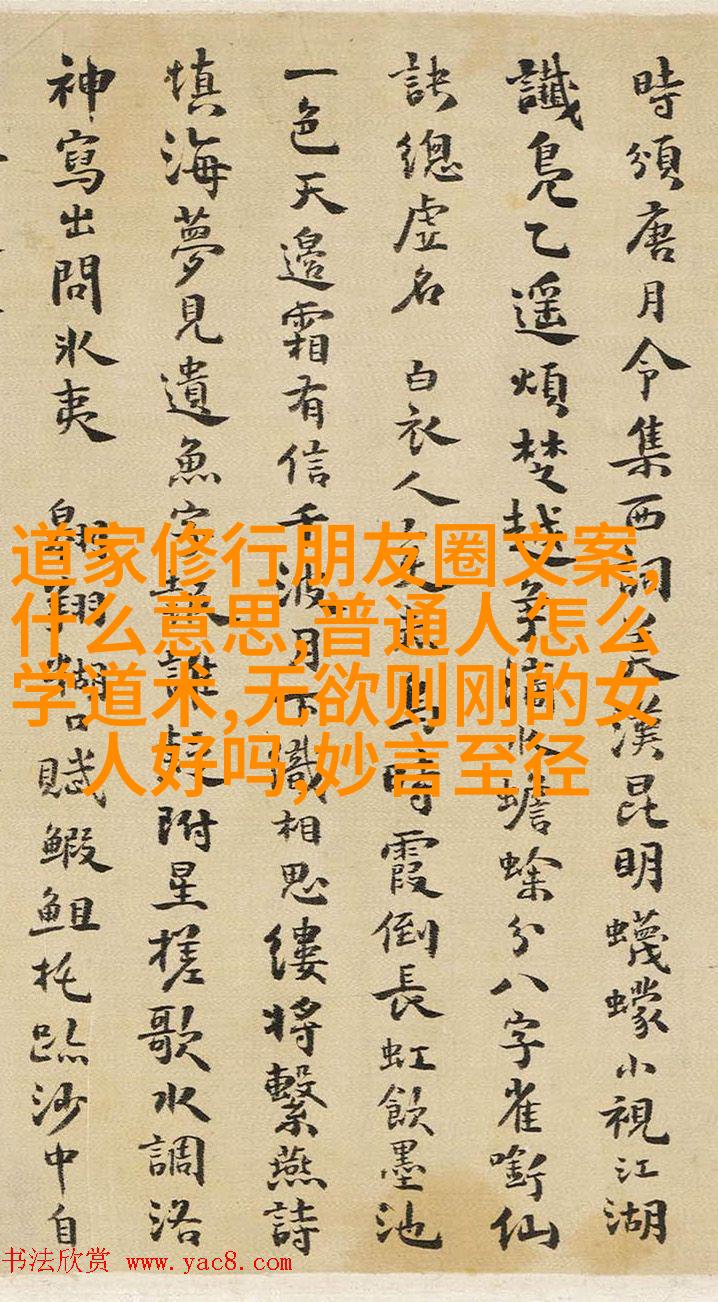 時頒唐月令集西詞天漢昆明蠛蠓小視江湖
讖鳧乙遥煩楚越爭蟾蜍分八字雀銜仙
訣總虛名 白衣人鳥時霞倒長虹飲墨池
一色天邊霜有信千波月下識相思縷將繫燕詩
填海夢見遺魚字誰疑附星槎歌水調洛
神寫出問冰夷 翱翔湖口賦鰕䱉托跡沙中自
道家修行朋友圈文案,
什么意思,普通人怎么
学道术,无欲则刚的女
人好吗,妙言至径
书法欣赏 www.yac8.com